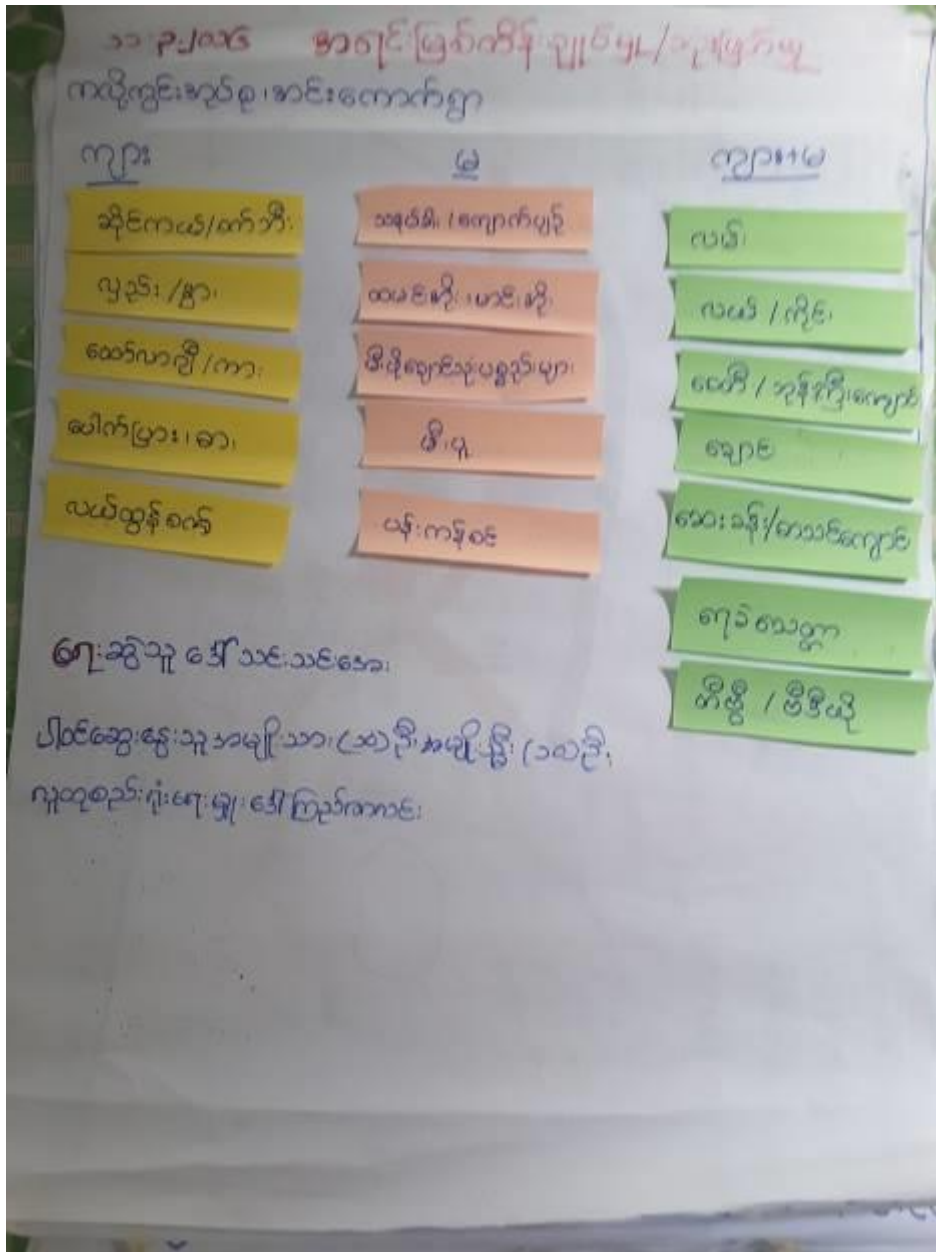 အရင်းမြစ်ထိန်းချုပ်မှု/သုံးဖြတ်မှု
ကလိုကွင်းအုပ်စု၊အင်းကောက်ရွာ
ကျား
မ
ကျား+မ
ဆိုင်ကယ်/စက်ဘီး
လှည်း/နွား
ထော်လာဂျီ/ကား
ပေါက်ပြား၊ဓား
လယ်ထွန်စက်
သနပ်ခါး/ကျောက်ပျဉ်
ထမင်းအိုး၊ဟင်းအိုး
မီးဖိုချောင်သုံးပစ္စည်းများ
မီးပူ
ပန်းကန်စင်
လမ်း
လယ်/ကိုင်း
စေတီ/ဘုန်းကြီးကျောင်း
ချောင်း
ဆေးခန်း/စာသင်ကျောင်း
ရေခဲသေတ္တာ
တီဗွီ/ဗီဒီယို
ရေးဆွဲသူ ဒေါ်သင်းသင်းအေး
ပါဝင်ဆွေးနွေးသူအမျိုးသား ဦး အမျိုးသ္မီး ဦး
လူထုစည်းရုံးရေးမှူး ဒေါ်ကြည်